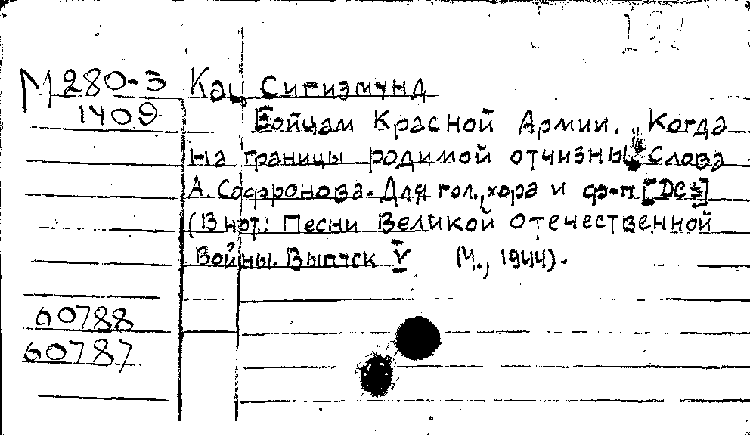 М 280-3
1409
Кац Сигизмунд
Бойцам Красной Армии. Когда
на границы родимой отчизны. Слова
А. Софронова. Для гол., хора и ф-п.
(В нот.: Песни Великой Отечественной
Войны. Выпуск V М., 1944).
60788
60787